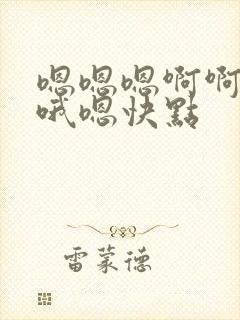 嗯嗯嗯啊啊
哦嗯快點
雷蒙德